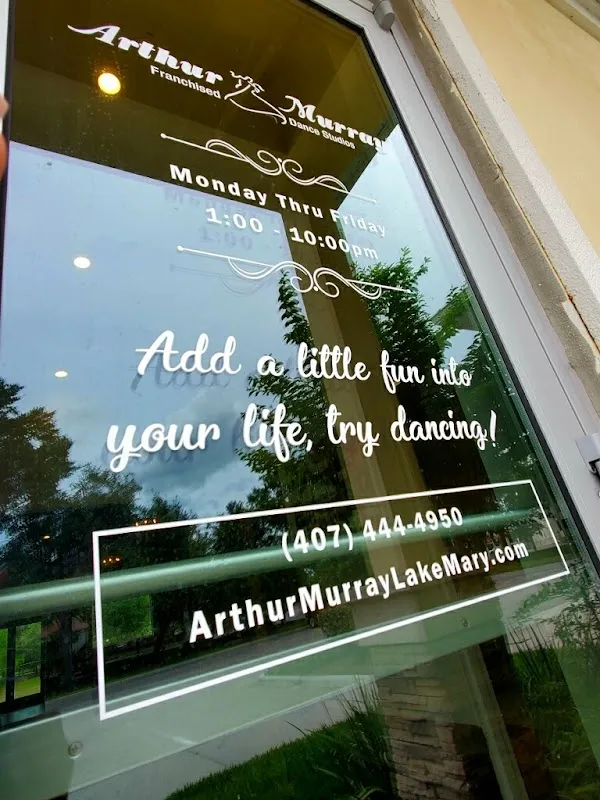 Arthur Murray
Franchised Dance Studios
Monday Thru Friday
1:00 - 10:00pm
Add a little fun into
your life, try dancing!
(407) 444-4950
ArthurMurrayLakeMary.com